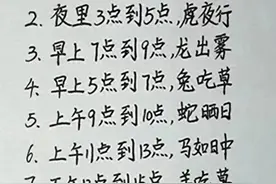 2. 夜里3点到5点,虎夜行
3. 早上7点到9点,龙出雾
4. 早上5点到7点,兔吃草
5. 上午9点到10点,蛇晒日
6. 上午11点到13点,马如日中
7. 下午13点到15点,羊吃草